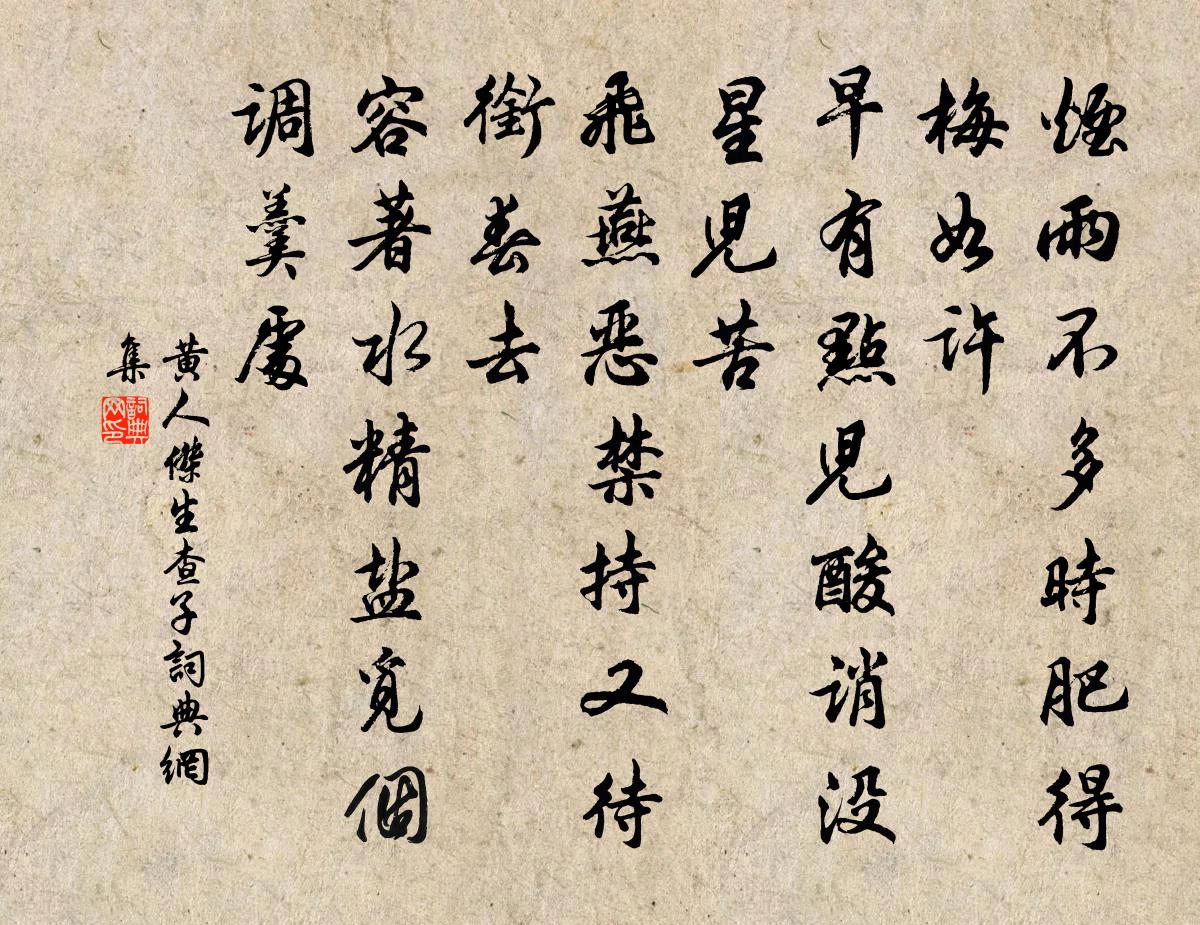 煙雨不多時肥得
梅如許
早有點兒酸誚没
星兒苦
飛燕惡禁持又待
銜春去
容著水精盐覓個
调羹處
黄人傑生查子詞典網
集
詞典网印